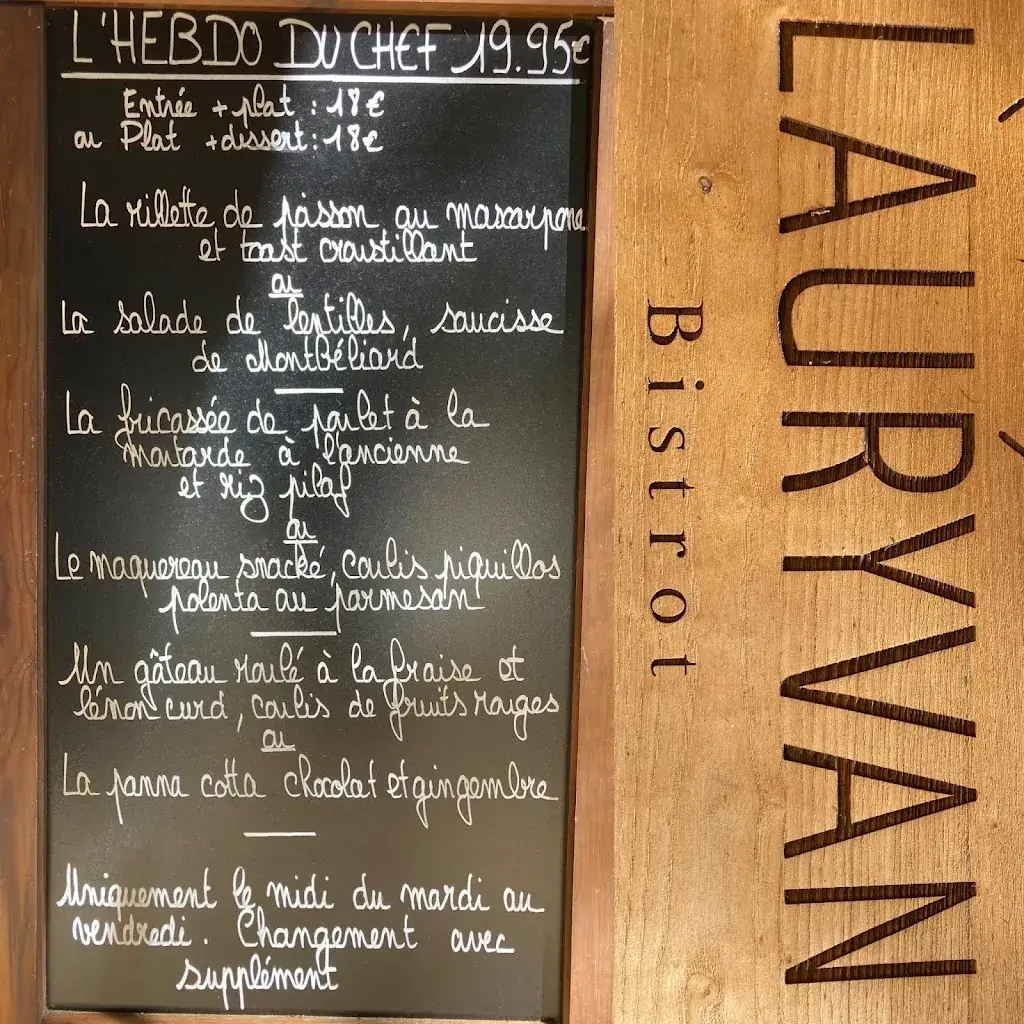 L'HEBDO DU CHEF 19.95€
Entrée + plat : 18€
ou Plat + dissert : 18€
La rillette de poisson au mascarpone
et toast croustillant
ou
La salade de lentilles, saucisse
de Montbéliard
La fricassée de poulet à la
moutarde à l'ancienne
et riz pilaf
ou
Le maquereau snacké, coulis piquillos
polenta au parmesan
Un gâteau roulé à la fraise et
lémon curd, coulis de fruits rouges
ou
La panna cotta chocolat et gingembre
Uniquement le midi du mardi au
vendredi. Changement avec
supplément
LAURYVAN
Bistrot